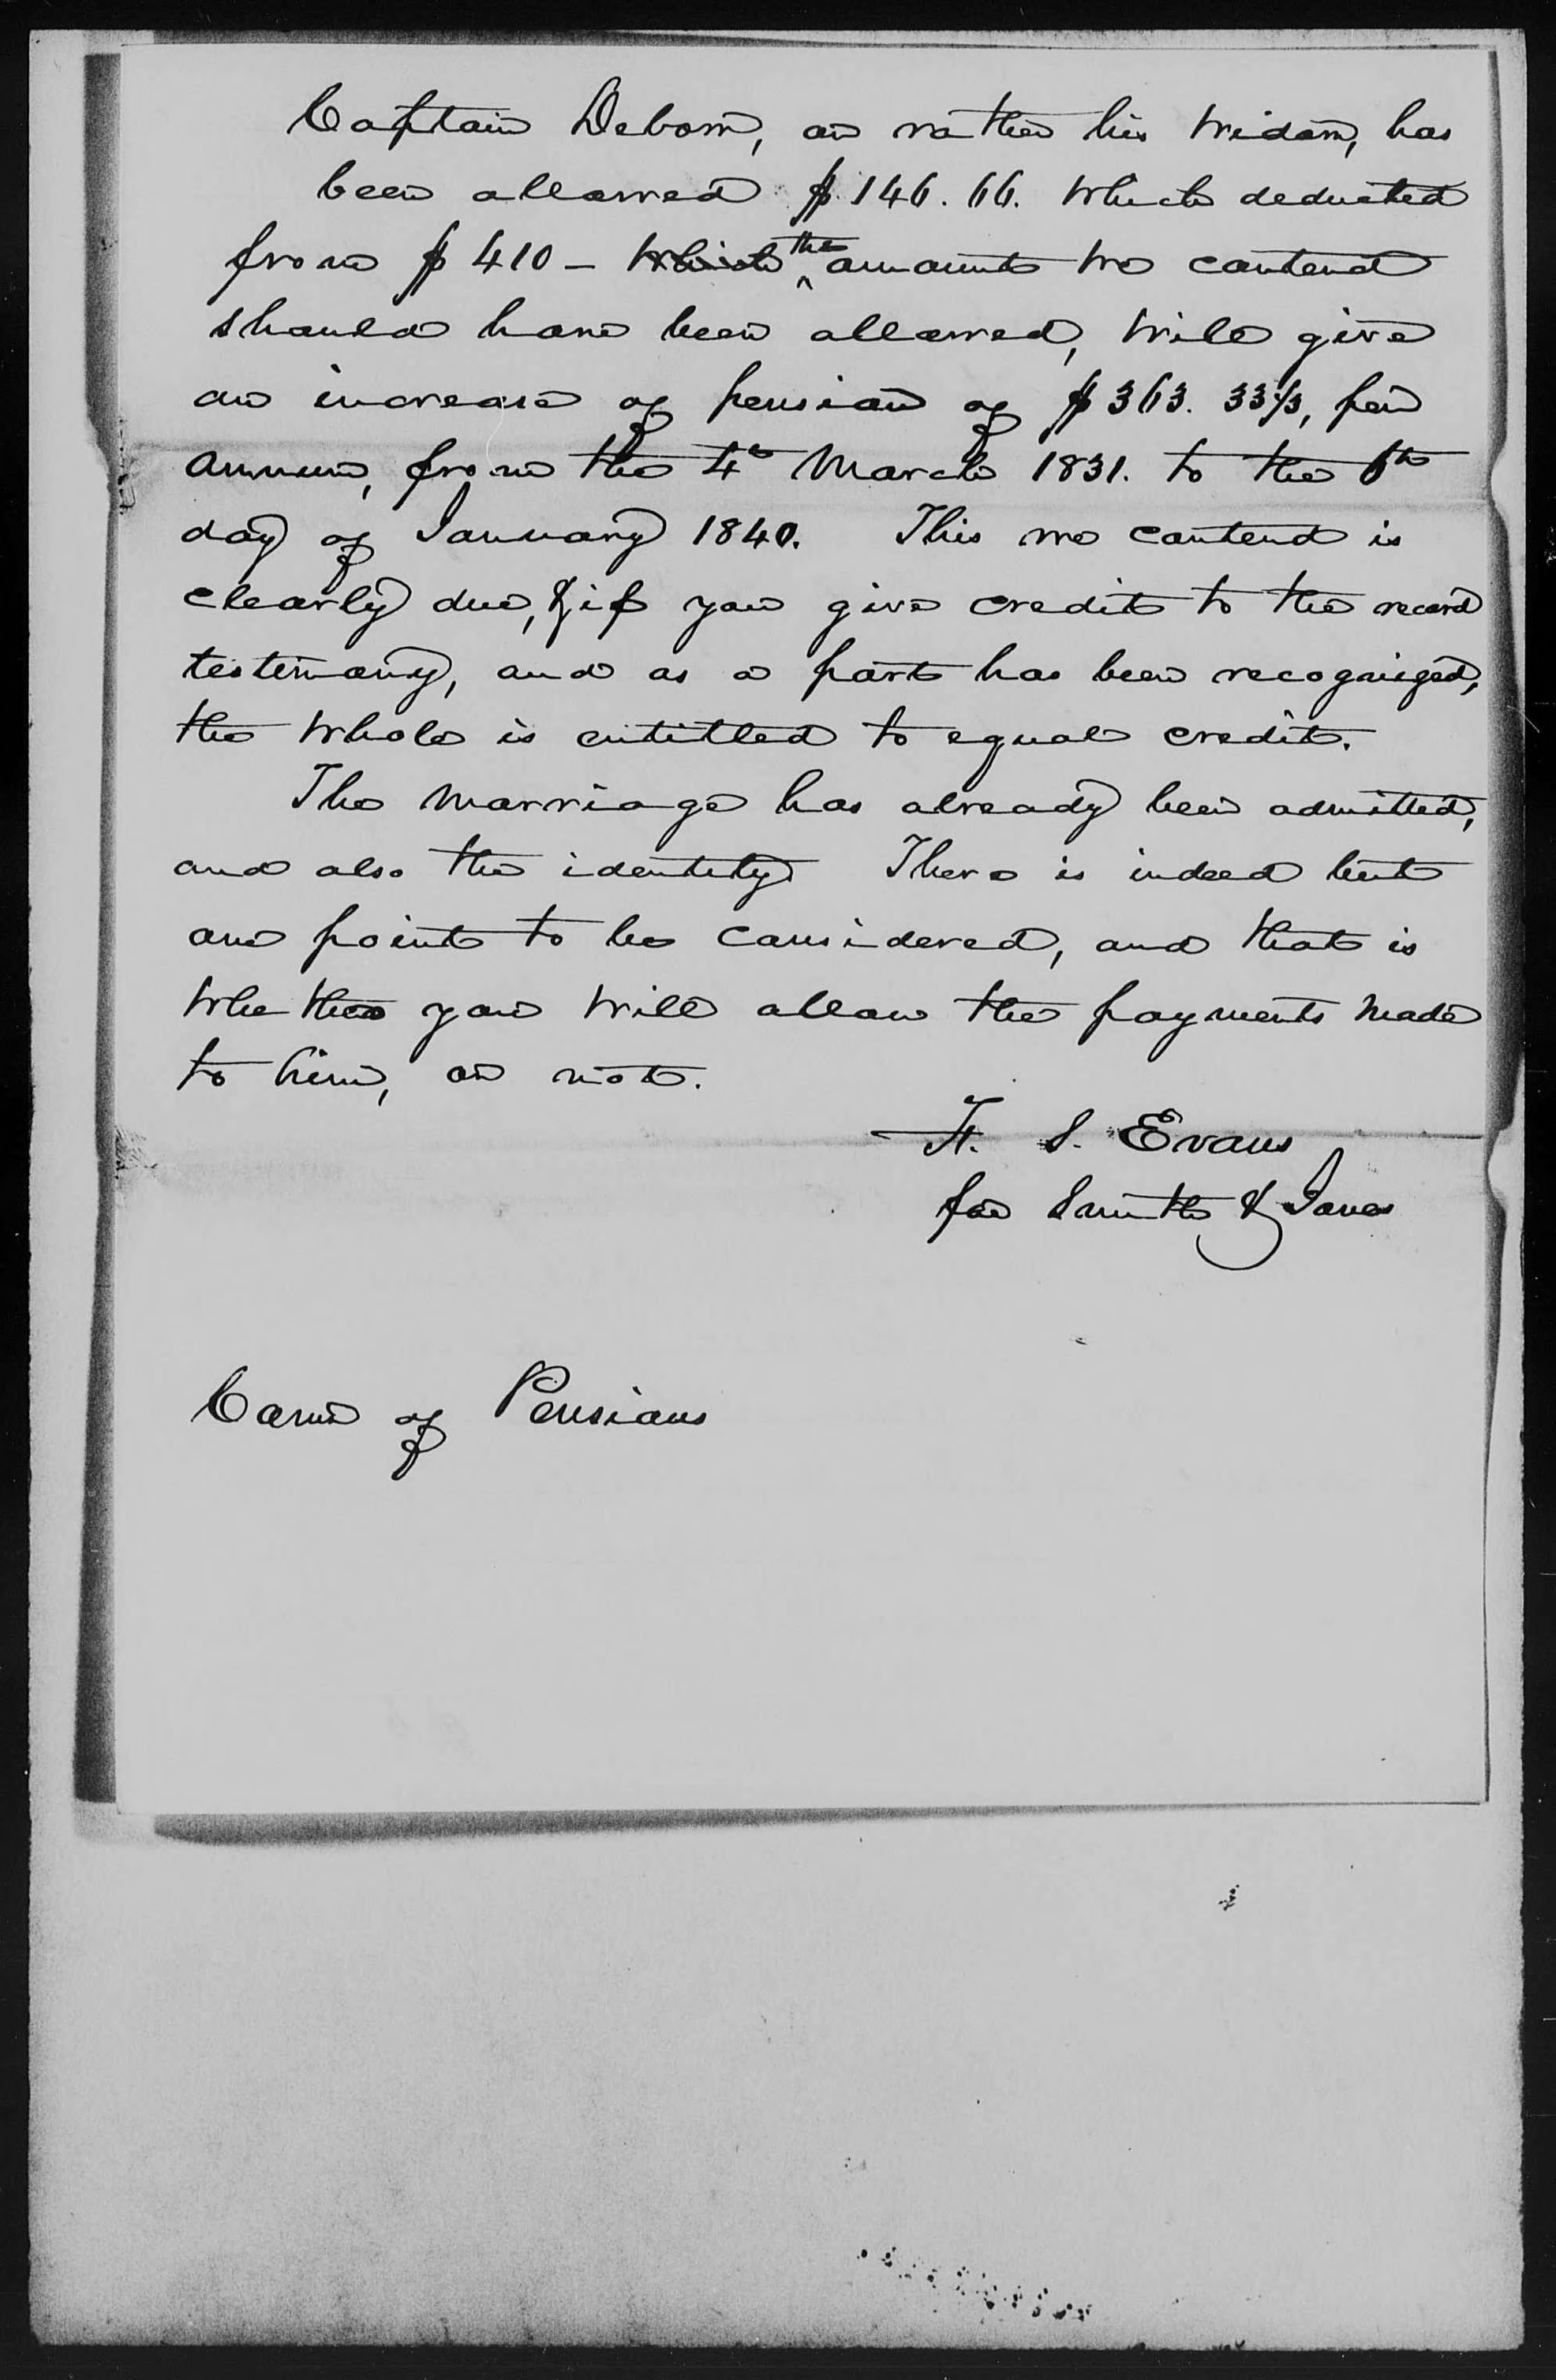 Captain Debow, or rather his widow, has
been allowed $146.66. which deducted
from $410 - which the amount we contend
should have been allowed, will give
an increase of pension of $363.33⅓, per
annum, from the 4th March 1831. to the 6th
day of January 1840. This we contend is
clearly due, & if you give credit to the record
testimony, and as a part has been recognized,
the whole is entitled to equal credit.
The marriage has already been admitted,
and also the identity. There is indeed but
one point to be considered, and that is
whether you will allow the payments made
to him, or not.
F. S. Evans
for Smith & Jones
Comr of Pensions